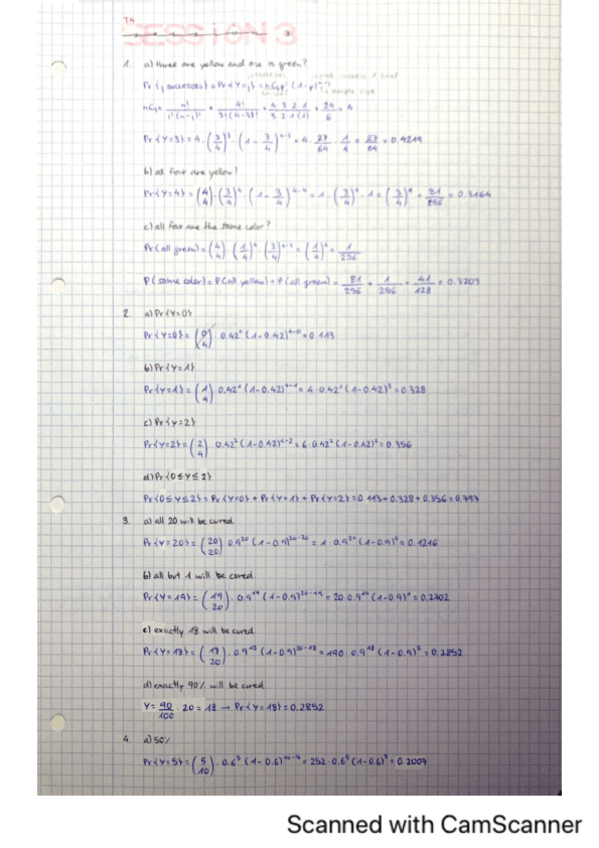 T4
SESSION 3
1. a) three are yellow and one is green?
Pr{j successes} = Pr{Y=j} = nCj p^j (1-p)^n-j
nCj = n!/j!(n-j)! = 4!/3!(4-3)! = 4·3·2·1/3·2·1(1) = 24/6 = 4
Pr{Y=3} = 4·(3/4)^3·(1-3/4)^4-3 = 4·27/64·1/4 = 27/64 = 0.4219
b) all four are yellow?
Pr{Y=4} = (4/4)·(3/4)^4·(1-3/4)^4-4 = 1·(3/4)^4·1 = (3/4)^4 = 81/256 = 0.3164
c) all four are the same color?
Pr(all green) = (4/4)·(1/4)^4·(3/4)^4-4 = (1/4)^4 = 1/256
P(same color) = P(all yellow) + P(all green) = 81/256 + 1/256 = 41/128 = 0.3203
2. a) Pr{Y=0}
Pr{Y=0} = (0/4)·0.42^0 (1-0.42)^4-0 = 0.113
b) Pr{Y=1}
Pr{Y=1} = (1/4)·0.42^1 (1-0.42)^4-1 = 4·0.42^1 (1-0.42)^3 = 0.328
c) Pr{Y=2}
Pr{Y=2} = (2/4)·0.42^2 (1-0.42)^4-2 = 6·0.42^2 (1-0.42)^2 = 0.356
d) Pr{0≤Y≤2}
Pr{0≤Y≤2} = Pr{Y=0} + Pr{Y=1} + Pr{Y=2} = 0.113 + 0.328 + 0.356 = 0.797
3. a) all 20 will be cured.
Pr{Y=20} = (20/20) 0.9^20 (1-0.9)^20-20 = 1·0.9^20 (1-0.9)^0 = 0.1216
b) all but 1 will be cured.
Pr{Y=19} = (19/20)·0.9^19 (1-0.9)^20-19 = 20·0.9^19 (1-0.9)^1 = 0.2702
c) exactly 18 will be cured.
Pr{Y=18} = (18/20)·0.9^18 (1-0.9)^20-18 = 190·0.9^18 (1-0.9)^2 = 0.2852
d) exactly 90% will be cured.
Y = 90/100 · 20 = 18 → Pr{Y=18} = 0.2852
4. a) 50%
Pr{Y=5} = (5/10)·0.6^5 (1-0.6)^10-5 = 252·0.6^5 (1-0.6)^5 = 0.2007
Scanned with CamScanner